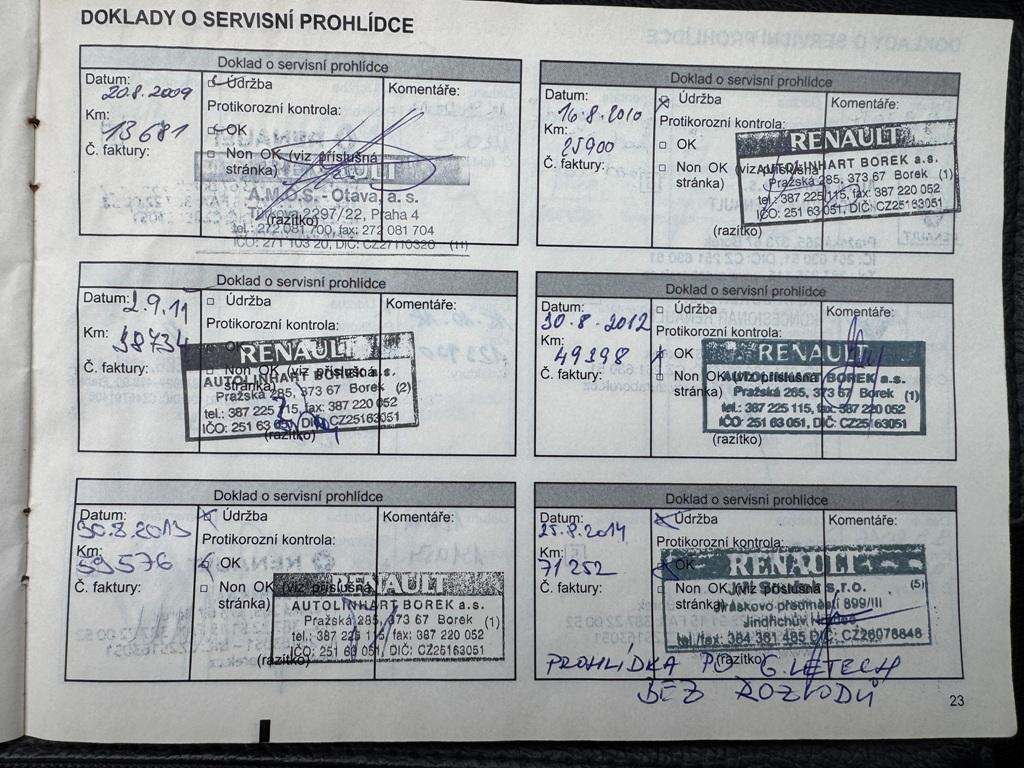 DOKLADY O SERVISNÍ PROHLÍDCE
Doklad o servisní prohlídce
Datum:
20.8.2009
Km:
13681
Č. faktury:
Údržba
Protikorozní kontrola:
OK
Non OK (viz příslušná
stránka)
(razítko)
Komentáře:
A.M.O.S. - Otava, a. s.
2297/22, Praha 4
tel.: 272 081 700, fax: 272 081 704
IČO: 271 103 20, DIČ: CZ27110320 (11)
Doklad o servisní prohlídce
Datum:
16.8.2010
Km:
25900
Č. faktury:
Údržba
Protikorozní kontrola:
OK
Non OK (viz příslušná
stránka)
(razítko)
Komentáře:
RENAULT
AUTOLINHART BOREK a.s.
Pražská 285, 373 67 Borek (1)
tel.: 387 225 115, fax: 387 220 052
IČO: 251 63 051, DIČ: CZ25163051
Doklad o servisní prohlídce
Datum:
2.9.11
Km:
38734
Č. faktury:
Údržba
Protikorozní kontrola:
OK
Non OK (viz příslušná
stránka)
(razítko)
Komentáře:
RENAULT
AUTOLINHART BOREK a.s.
Pražská 285, 373 67 Borek (2)
tel.: 387 225 115, fax: 387 220 052
IČO: 251 63 051, DIČ: CZ25163051
Doklad o servisní prohlídce
Datum:
30.8.2012
Km:
49398
Č. faktury:
Údržba
Protikorozní kontrola:
OK
Non OK (viz příslušná
stránka)
(razítko)
Komentáře:
RENAULT
AUTOLINHART BOREK a.s.
Pražská 285, 373 67 Borek (1)
tel.: 387 225 115, fax: 387 220 052
IČO: 251 63 051, DIČ: CZ25163051
Doklad o servisní prohlídce
Datum:
30.8.2013
Km:
59576
Č. faktury:
Údržba
Protikorozní kontrola:
OK
Non OK (viz příslušná
stránka)
(razítko)
Komentáře:
RENAULT
AUTOLINHART BOREK a.s.
Pražská 285, 373 67 Borek (1)
tel.: 387 225 115, fax: 387 220 052
IČO: 251 63 051, DIČ: CZ25163051
Doklad o servisní prohlídce
Datum:
25.8.2014
Km:
71252
Č. faktury:
Údržba
Protikorozní kontrola:
OK
Non OK (viz příslušná
stránka)
(razítko)
Komentáře:
RENAULT
s.r.o. (5)
předměstí 899/III
Jindřichův
tel./fax: 384 361 485 DIČ: CZ26076848
PROHLÍDKA PO 6. LETECH
BEZ ROZVODŮ
23